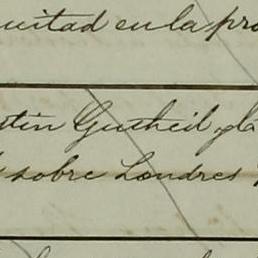 mitad en la pro
stin Gutheil, gla
sobre Londres